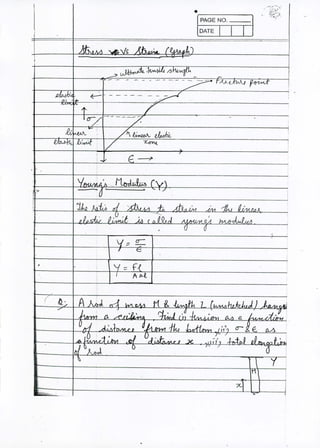 PAGE NO.
DATE
Stress Vs Strain (Graph)
ultimate tensile strength
Fracture point
elastic
limit
σ
linear
elastic limit
linear elastic
zone
ϵ →
Young's Modulus (Y).
The ratio of stress to strain in the linear
elastic limit is called young's modulus.
Y = σ/ϵ
Y = Fl / A Δl
Q:- A rod of mass M & length L (unstretched) hangs
from a ceiling. Find i) tension as a function
of distance from the bottom, ii) σ & ϵ as
a function of distance x. iii) total elongation
of rod
Y
M
x